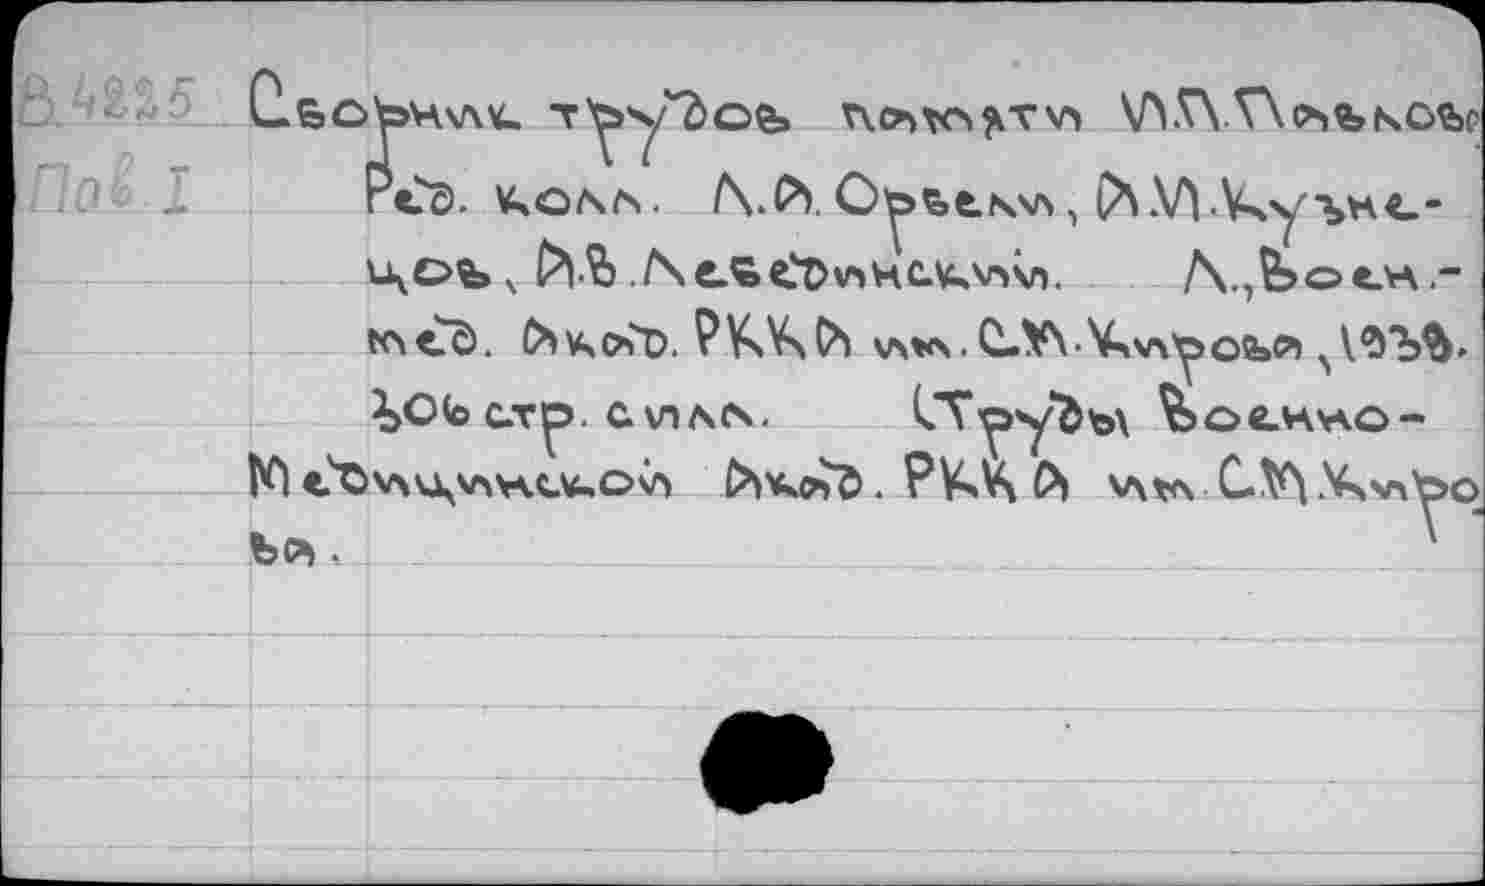 В 4225 Сборник трудов памяти И.П.Павлова
Пав I Ред. колл. Л.А.Орбели, А.И.Кузне-
цов, А.В.Лебединский. Л.,Воен.-
мед. Акад. РККА им. С.М.Кирова, 1938.
306 стр. с илл. (Труды Военно-
Медицинской Акад. РККА им С.М.Киро
ва.